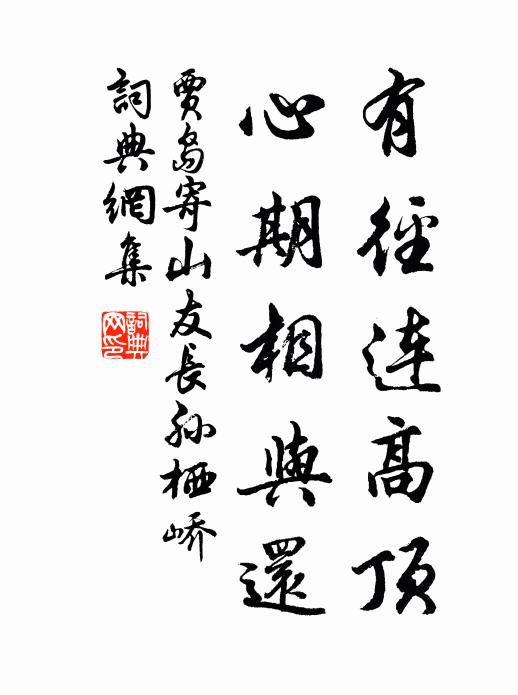 有徑連高頂
心期相與還
賈島寄山友長孫栖嶠
詞典網集
詞典網印